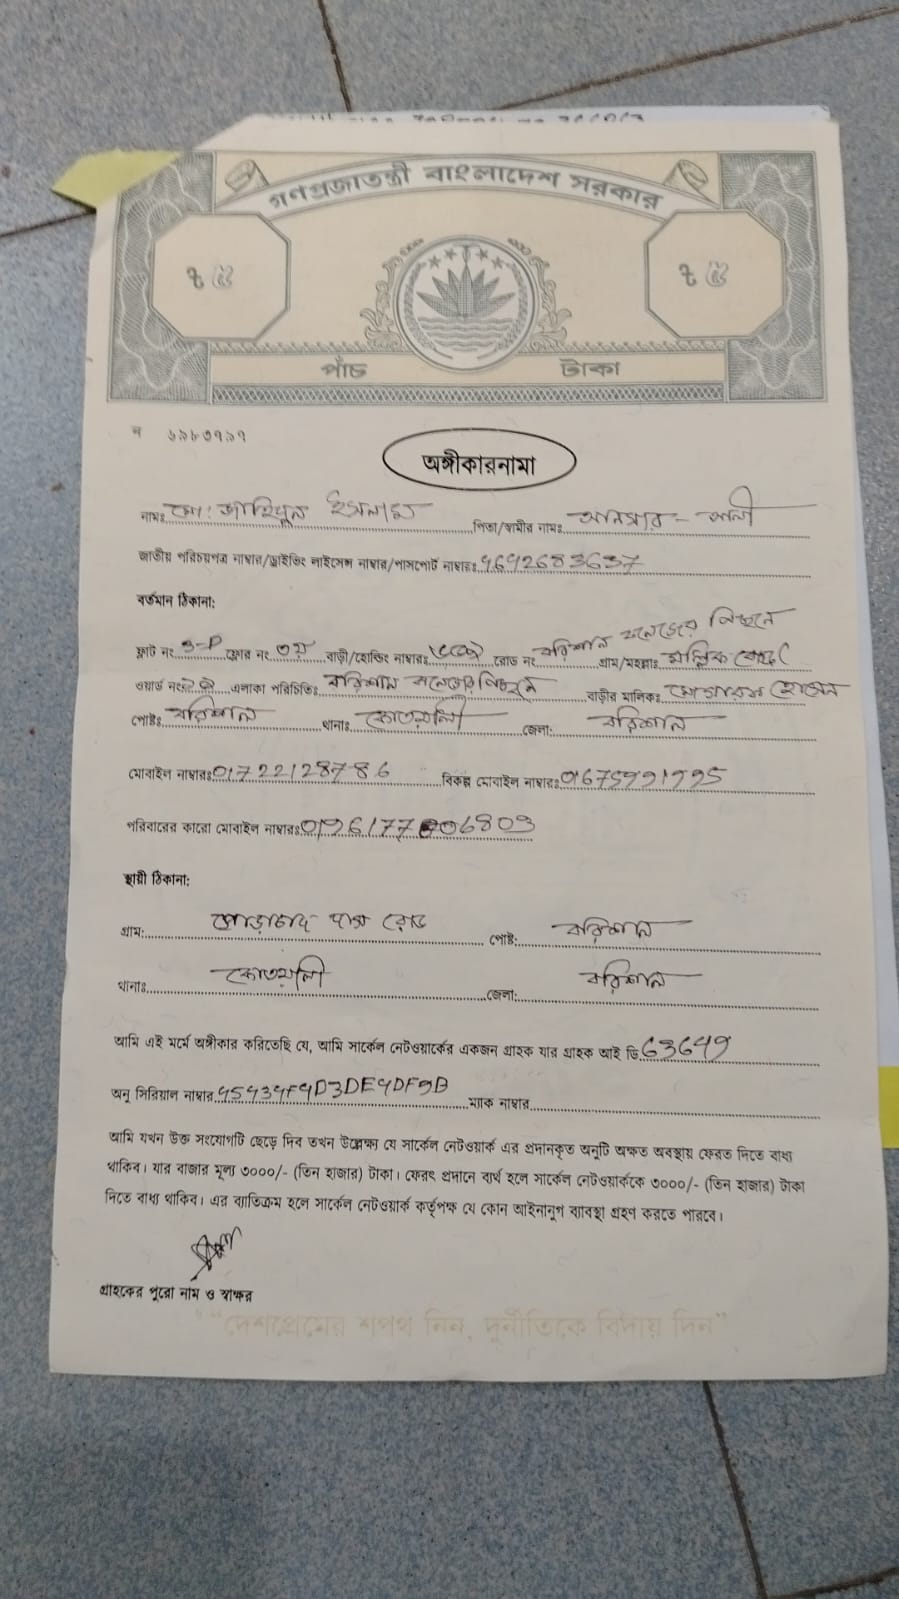 গণপ্রজাতন্ত্রী বাংলাদেশ সরকার
৳ ৫ ৳ ৫
পাঁচ টাকা
অঙ্গীকারনামা
নামঃ মো: জাহিদুল ইসলাম পিতা/স্বামীর নামঃ আনসার - আলী
জাতীয় পরিচয়পত্র নাম্বার/ড্রাইভিং লাইসেন্স নাম্বার/পাসপোর্ট নাম্বারঃ 4642683637
বর্তমান ঠিকানা:
ফ্লাট নং ফ্লোর নং ৩য় বাড়ী/হোল্ডিং নাম্বারঃ রোড নং বরিশাল কলেজের পিছনে গ্রাম/মহল্লাঃ মল্লিক রোড
ওয়ার্ড নংঃ এলাকা পরিচিতিঃ বরিশাল কলেজের পিছনে বাড়ীর মালিকঃ হোসেন
পোষ্টঃ বরিশাল থানাঃ কোতয়ালী জেলা: বরিশাল
মোবাইল নাম্বারঃ 01722128786 বিকল্প মোবাইল নাম্বারঃ
পরিবারের কারো মোবাইল নাম্বারঃ
স্থায়ী ঠিকানা:
গ্রাম: গোড়াচাঁদ দাস রোড পোষ্ট: বরিশাল
থানাঃ কোতয়ালী জেলা: বরিশাল
আমি এই মর্মে অঙ্গীকার করিতেছি যে, আমি সার্কেল নেটওয়ার্কের একজন গ্রাহক যার গ্রাহক আই ডি 63649
অনু সিরিয়াল নাম্বার ম্যাক নাম্বার
আমি যখন উক্ত সংযোগটি ছেড়ে দিব তখন উল্লেক্ষ্য যে সার্কেল নেটওয়ার্ক এর প্রদানকৃত অনুটি অক্ষত অবস্থায় ফেরত দিতে বাধ্য
থাকিব। যার বাজার মূল্য ৩০০০/- (তিন হাজার) টাকা। ফেরৎ প্রদানে ব্যর্থ হলে সার্কেল নেটওয়ার্ককে ৩০০০/- (তিন হাজার) টাকা
দিতে বাধ্য থাকিব। এর ব্যতিক্রম হলে সার্কেল নেটওয়ার্ক কর্তৃপক্ষ যে কোন আইনানুগ ব্যাবস্থা গ্রহণ করতে পারবে।
গ্রাহকের পুরো নাম ও স্বাক্ষর
“দেশপ্রেমের শপথ নিন, দুর্নীতিকে বিদায় দিন”